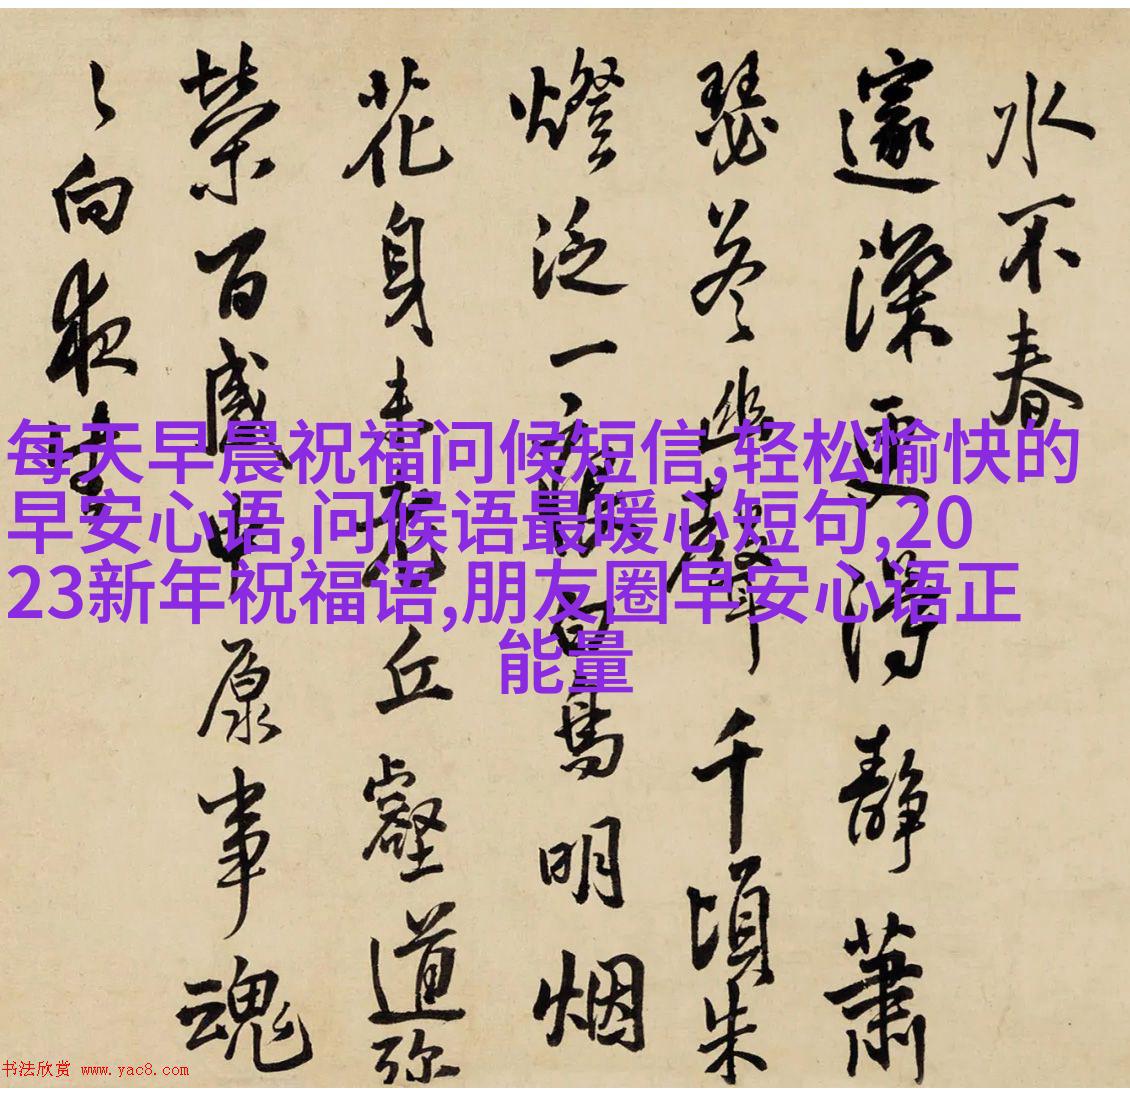 水不春
邃深更得靜蕭
瑟答幽聲千頃朱
燈泛一白鳥明烟
花身未丘壑道弥
榮百感中原事魂
々向夜
每天早晨祝福问候短信,轻松愉快的
早安心语,问候语最暖心短句,20
23新年祝福语,朋友圈早安心语正
能量
书法欣赏 www.yac8.com